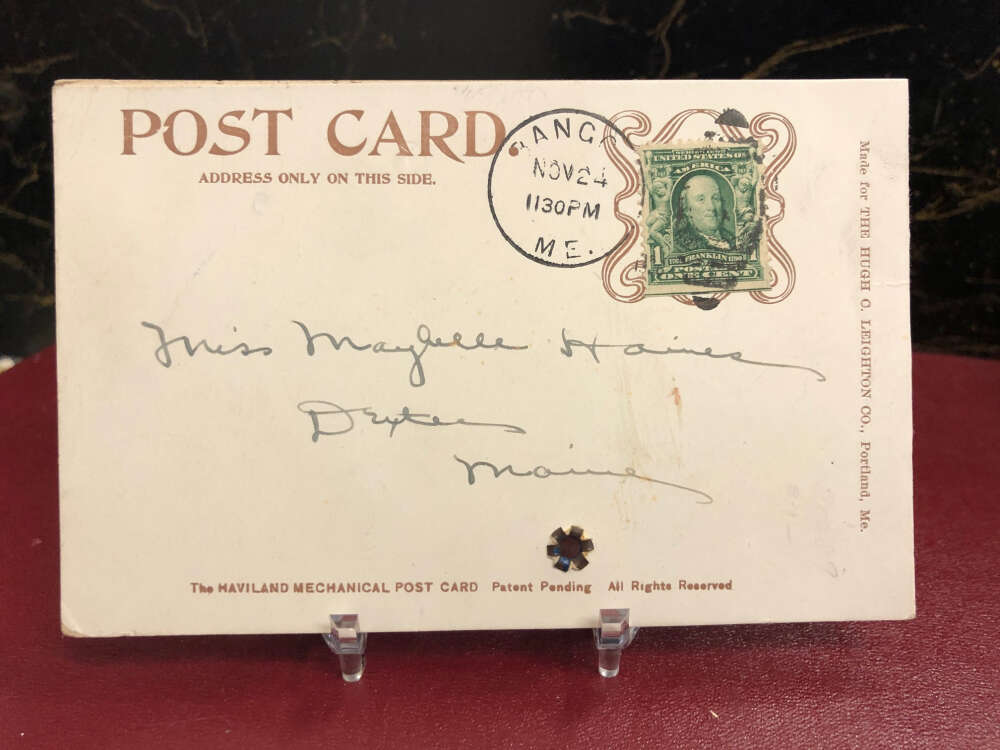 POST CARD.
ADDRESS ONLY ON THIS SIDE.
BANGO
NOV 24
1130PM
ME.
UNITED STATES OF
AMERICA
1 FRANKLIN 1790 1
POSTAGE
ONE CENT
Made for THE HUGH C. LEIGHTON CO., Portland, Me.
Miss Maybelle Haines
Dexter
Maine
The HAVILAND MECHANICAL POST CARD Patent Pending All Rights Reserved